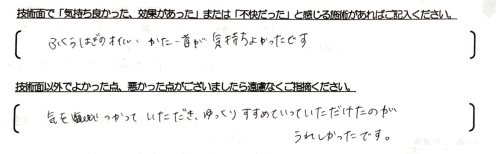 技術面で「気持ち良かった、効果があった」または「不快だった」と感じる施術があればご記入ください。
ふくらはぎのオイル、かた・首が気持ちよかったです
技術面以外でよかった点、悪かった点がございましたら遠慮なくご指摘ください。
気をつかっていただき、ゆっくりすすめていっていただけたのが
うれしかったです。